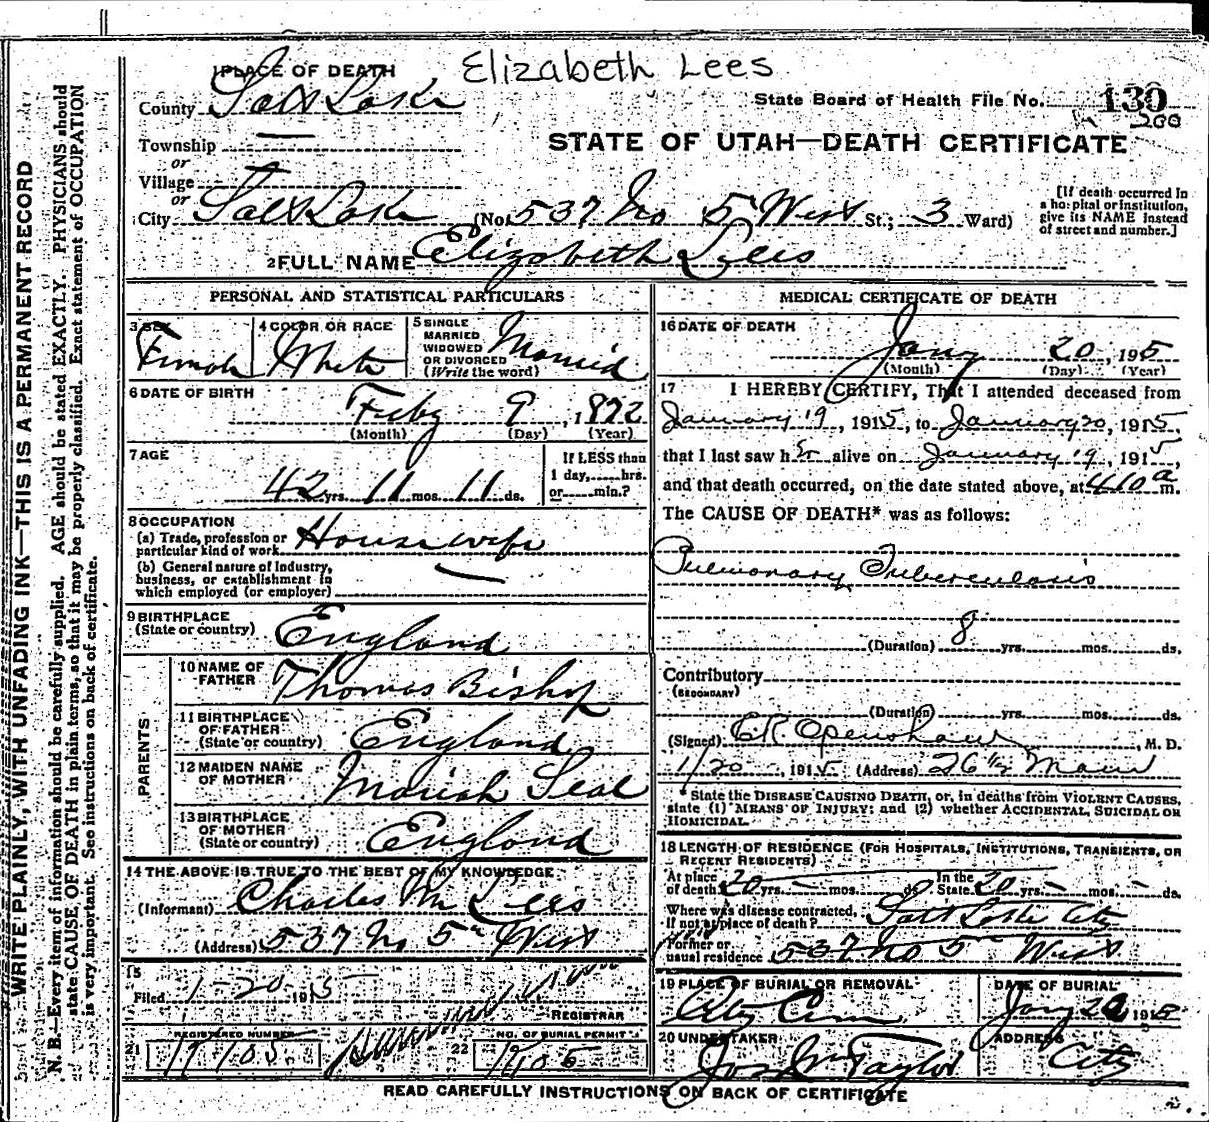 Elizabeth Lees
1 PLACE OF DEATH
County Salt Lake
State Board of Health File No. 130
200
Township —
or
Village
or
STATE OF UTAH—DEATH CERTIFICATE
City Salt Lake (No. 537 No 5 West St.; 3 Ward)
[If death occurred in a hospital or institution, give its NAME instead of street and number.]
2 FULL NAME Elizabeth Lees
PERSONAL AND STATISTICAL PARTICULARS
3 SEX Female
4 COLOR OR RACE White
5 SINGLE MARRIED WIDOWED OR DIVORCED (Write the word) Married
6 DATE OF BIRTH Feby 9, 1872
(Month) (Day) (Year)
7 AGE 42 yrs. 11 mos. 11 ds.
If LESS than 1 day,......hrs. or......min.?
8 OCCUPATION
(a) Trade, profession or particular kind of work Housewife
(b) General nature of Industry, business, or establishment in which employed (or employer) —
9 BIRTHPLACE (State or country) England
PARENTS
10 NAME OF FATHER Thomas Bishop
11 BIRTHPLACE OF FATHER (State or country) England
12 MAIDEN NAME OF MOTHER Mariah Seal
13 BIRTHPLACE OF MOTHER (State or country) England
14 THE ABOVE IS TRUE TO THE BEST OF MY KNOWLEDGE
(Informant) Charles M Lees
(Address) 537 No 5th West
15
Filed 1-20 1915
REGISTRAR
REGISTERED NUMBER
21
NO. OF BURIAL PERMIT
22
MEDICAL CERTIFICATE OF DEATH
16 DATE OF DEATH
Jany 20, 1915
(Month) (Day) (Year)
17 I HEREBY CERTIFY, That I attended deceased from
January 19, 1915, to January 20, 1915,
that I last saw her alive on January 19, 1915,
and that death occurred, on the date stated above, at 410 a m.
The CAUSE OF DEATH* was as follows:
Pulmonary Tuberculosis
(Duration) 8 yrs. mos. ds.
Contributory
(SECONDARY)
(Duration) yrs. mos. ds.
(Signed) C R Openshaw, M. D.
1/20, 1915 (Address) 26 1/2 Main
*State the DISEASE CAUSING DEATH, or, in deaths from VIOLENT CAUSES, state (1) MEANS OF INJURY; and (2) whether ACCIDENTAL, SUICIDAL OR HOMICIDAL.
18 LENGTH OF RESIDENCE (FOR HOSPITALS, INSTITUTIONS, TRANSIENTS, OR RECENT RESIDENTS)
At place of death 20 yrs. — mos. ds. In the State 20 yrs. — mos. — ds.
Where was disease contracted, If not at place of death? Salt Lake City
Former or usual residence 537 No 5th West
19 PLACE OF BURIAL OR REMOVAL City Cem
DATE OF BURIAL Jany
20 UNDERTAKER Jos Wm Taylor
ADDRESS City
READ CAREFULLY INSTRUCTIONS ON BACK OF CERTIFICATE
WRITE PLAINLY, WITH UNFADING INK—THIS IS A PERMANENT RECORD
N. B.—Every item of information should be carefully supplied. AGE should be stated EXACTLY. PHYSICIANS should
state CAUSE OF DEATH in plain terms, so that it may be properly classified. Exact statement of OCCUPATION
is very important. See instructions on back of certificate.